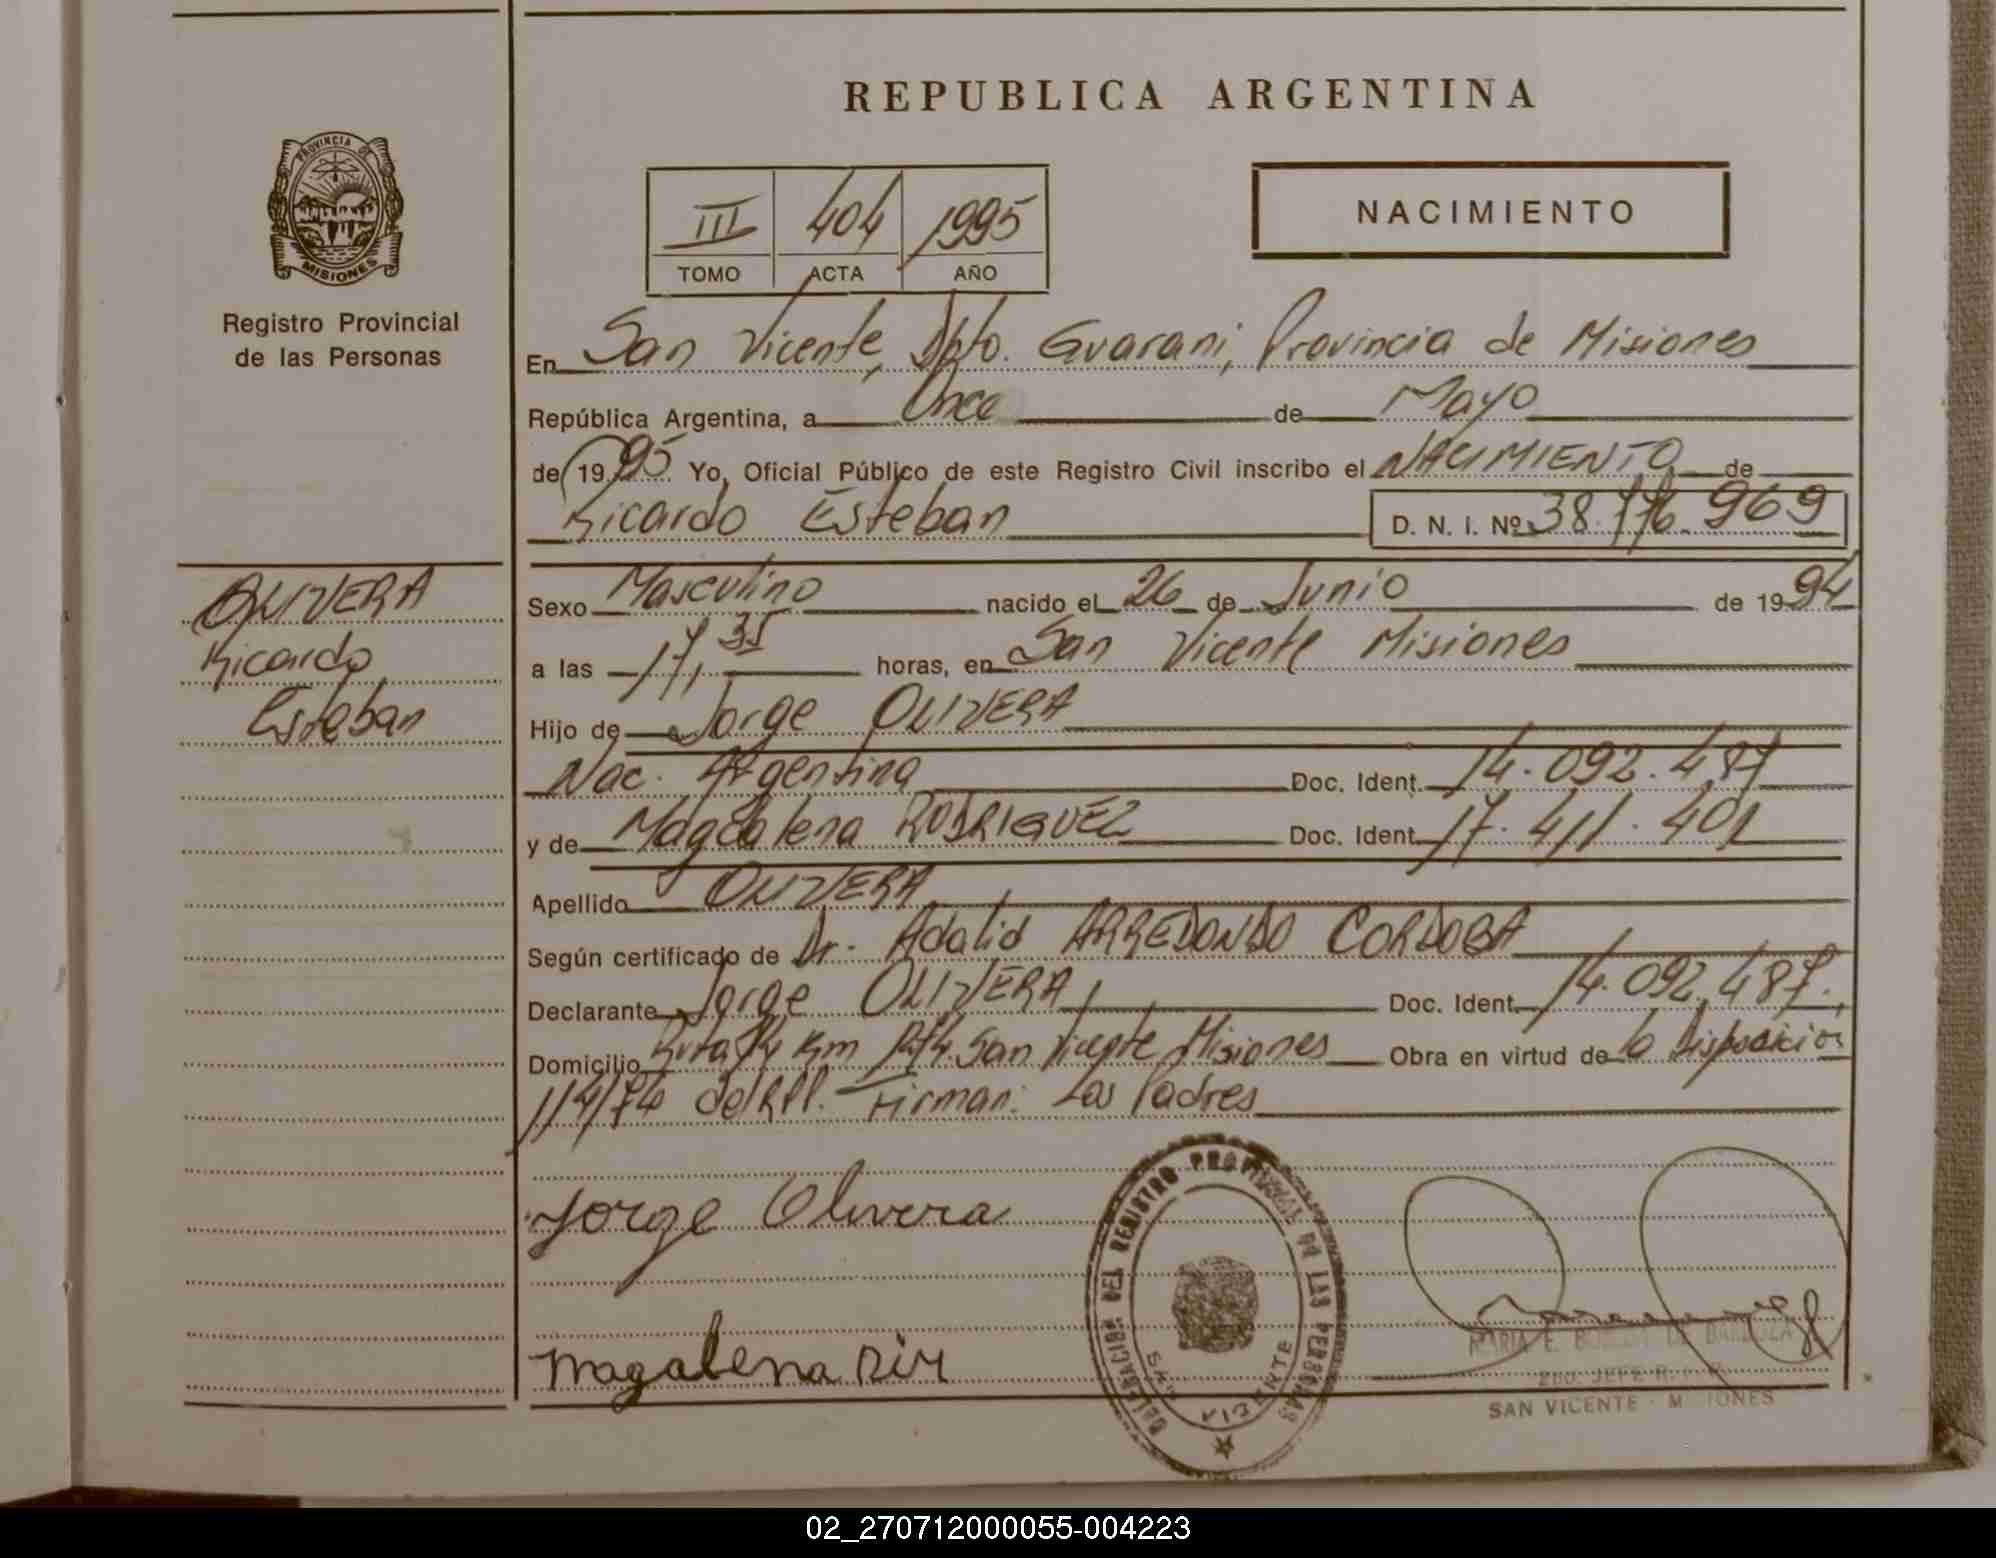 REPUBLICA ARGENTINA
PROVINCIA DE
MISIONES
Registro Provincial
de las Personas
III 404 1995
TOMO ACTA AÑO
NACIMIENTO
En San Vicente, Dpto. Guarani, Provincia de Misiones
República Argentina, a Once de Mayo
de 1995 Yo, Oficial Público de este Registro Civil inscribo el NACIMIENTO de
Ricardo Esteban D. N. I. Nº 38.776.969
OLIVERA
Ricardo
Esteban
Sexo Masculino nacido el 26 de Junio de 1994
a las 17,35 horas, en San Vicente Misiones
Hijo de Jorge OLIVERA
Nac. Argentina Doc. Ident. 14.092.487
y de Magdalena RODRIGUEZ Doc. Ident. 17.411.401
Apellido OLIVERA
Según certificado de Dr. Adalid ARREDONDO CORDOBA
Declarante Jorge OLIVERA Doc. Ident. 14.092.487.
Domicilio Ruta 14 Km San Vicente Misiones Obra en virtud de la Disposicion
114/74 del RPP. Firman: Los Padres
Jorge Olivera
magalena
DELEGACION DEL REGISTRO PROVINCIAL DE LAS PERSONAS
SAN VICENTE
MARIA E. DE BARBOZA
2DO. JEFE R.P.P.
SAN VICENTE - MISIONES
02_270712000055-004223